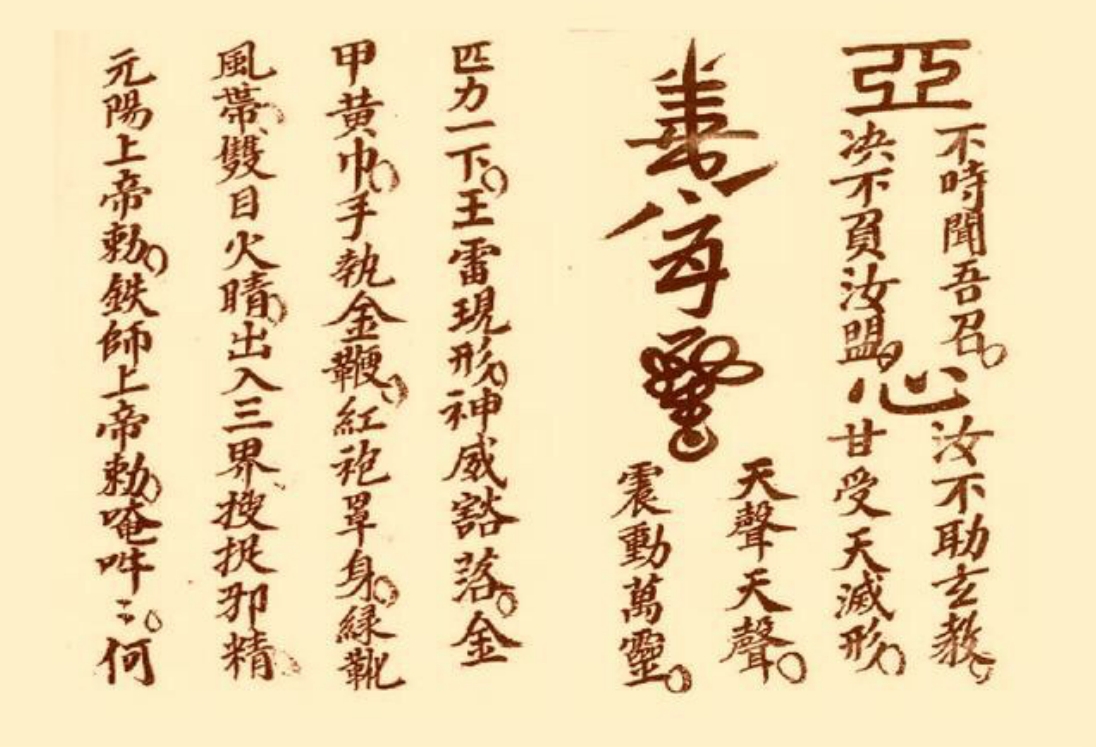 亞
不時聞吾召。
决不負汝盟。
心
汝不助玄教。
甘受天滅形。
天聲天聲。
震動萬靈。
匹力一下。王雷現形。神威豁落。金
甲黄巾。手執金鞭。紅袍罩身。緑靴
風帶。雙目火睛。出入三界、搜捉邪精。
元陽上帝勅。鉄師上帝勅。唵吽〻。何